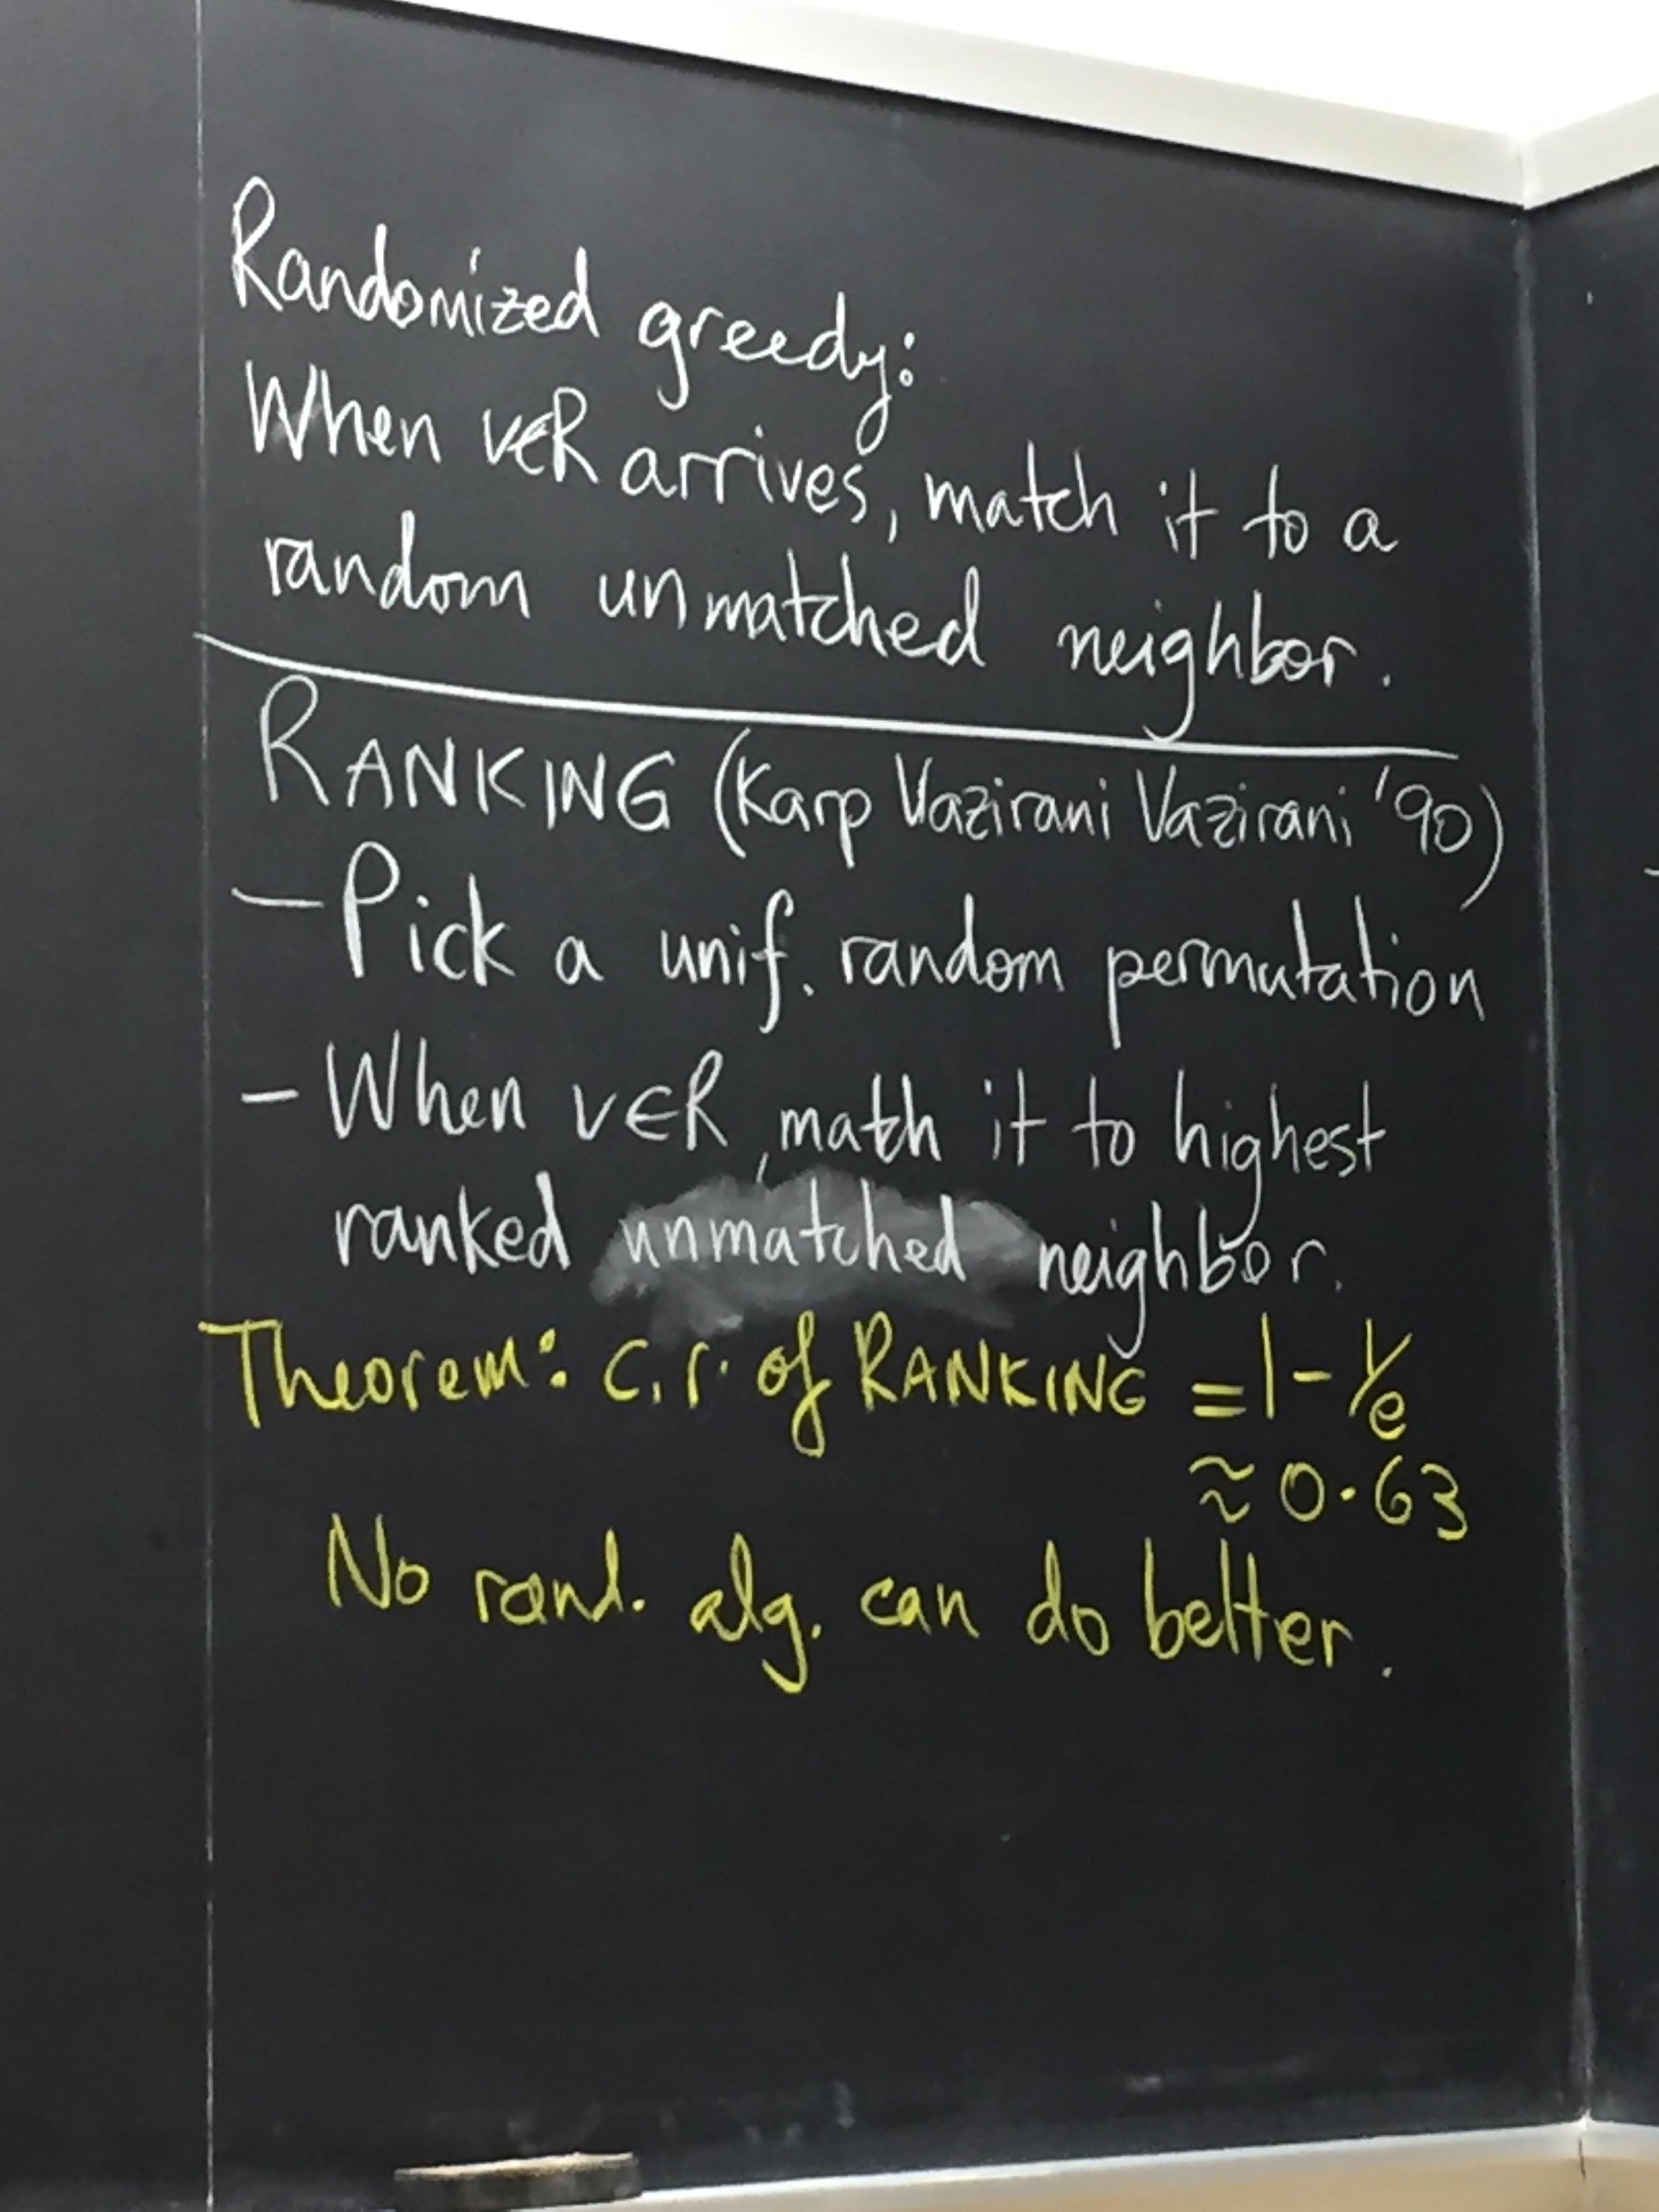 Randomized greedy:
When v∈R arrives, match it to a
random unmatched neighbor.
RANKING (Karp Vazirani Vazirani '90)
- Pick a unif. random permutation
- When v∈R, match it to highest
ranked unmatched neighbor.
Theorem: c.r. of RANKING = 1 - 1/e
≈ 0.63
No rand. alg. can do better.